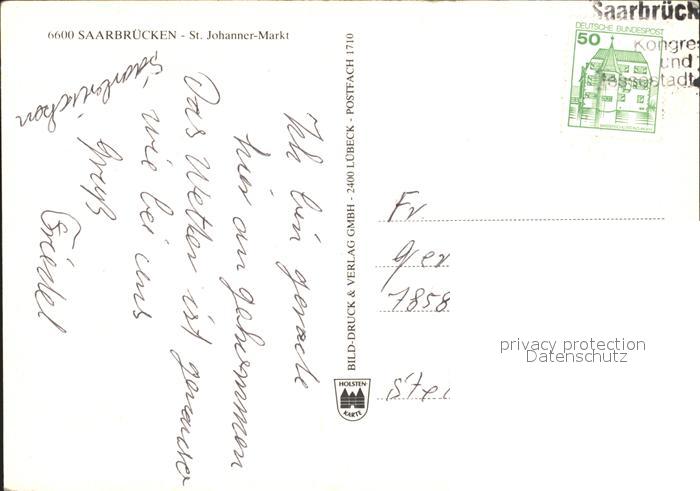 6600 SAARBRÜCKEN - St. Johanner-Markt
Saarbrücken
Ich bin gerade
hier angekommen
Das Wetter ist genauso
wie bei uns
Gruß
Friedel
BILD-DRUCK & VERLAG GMBH - 2400 LÜBECK - POSTFACH 1710
HOLSTEN-
KARTE
Saarbrück
Kongres
und
essestadt
DEUTSCHE BUNDESPOST
50
Fr.
Ger
7858
privacy protection
Datenschutz
Stei